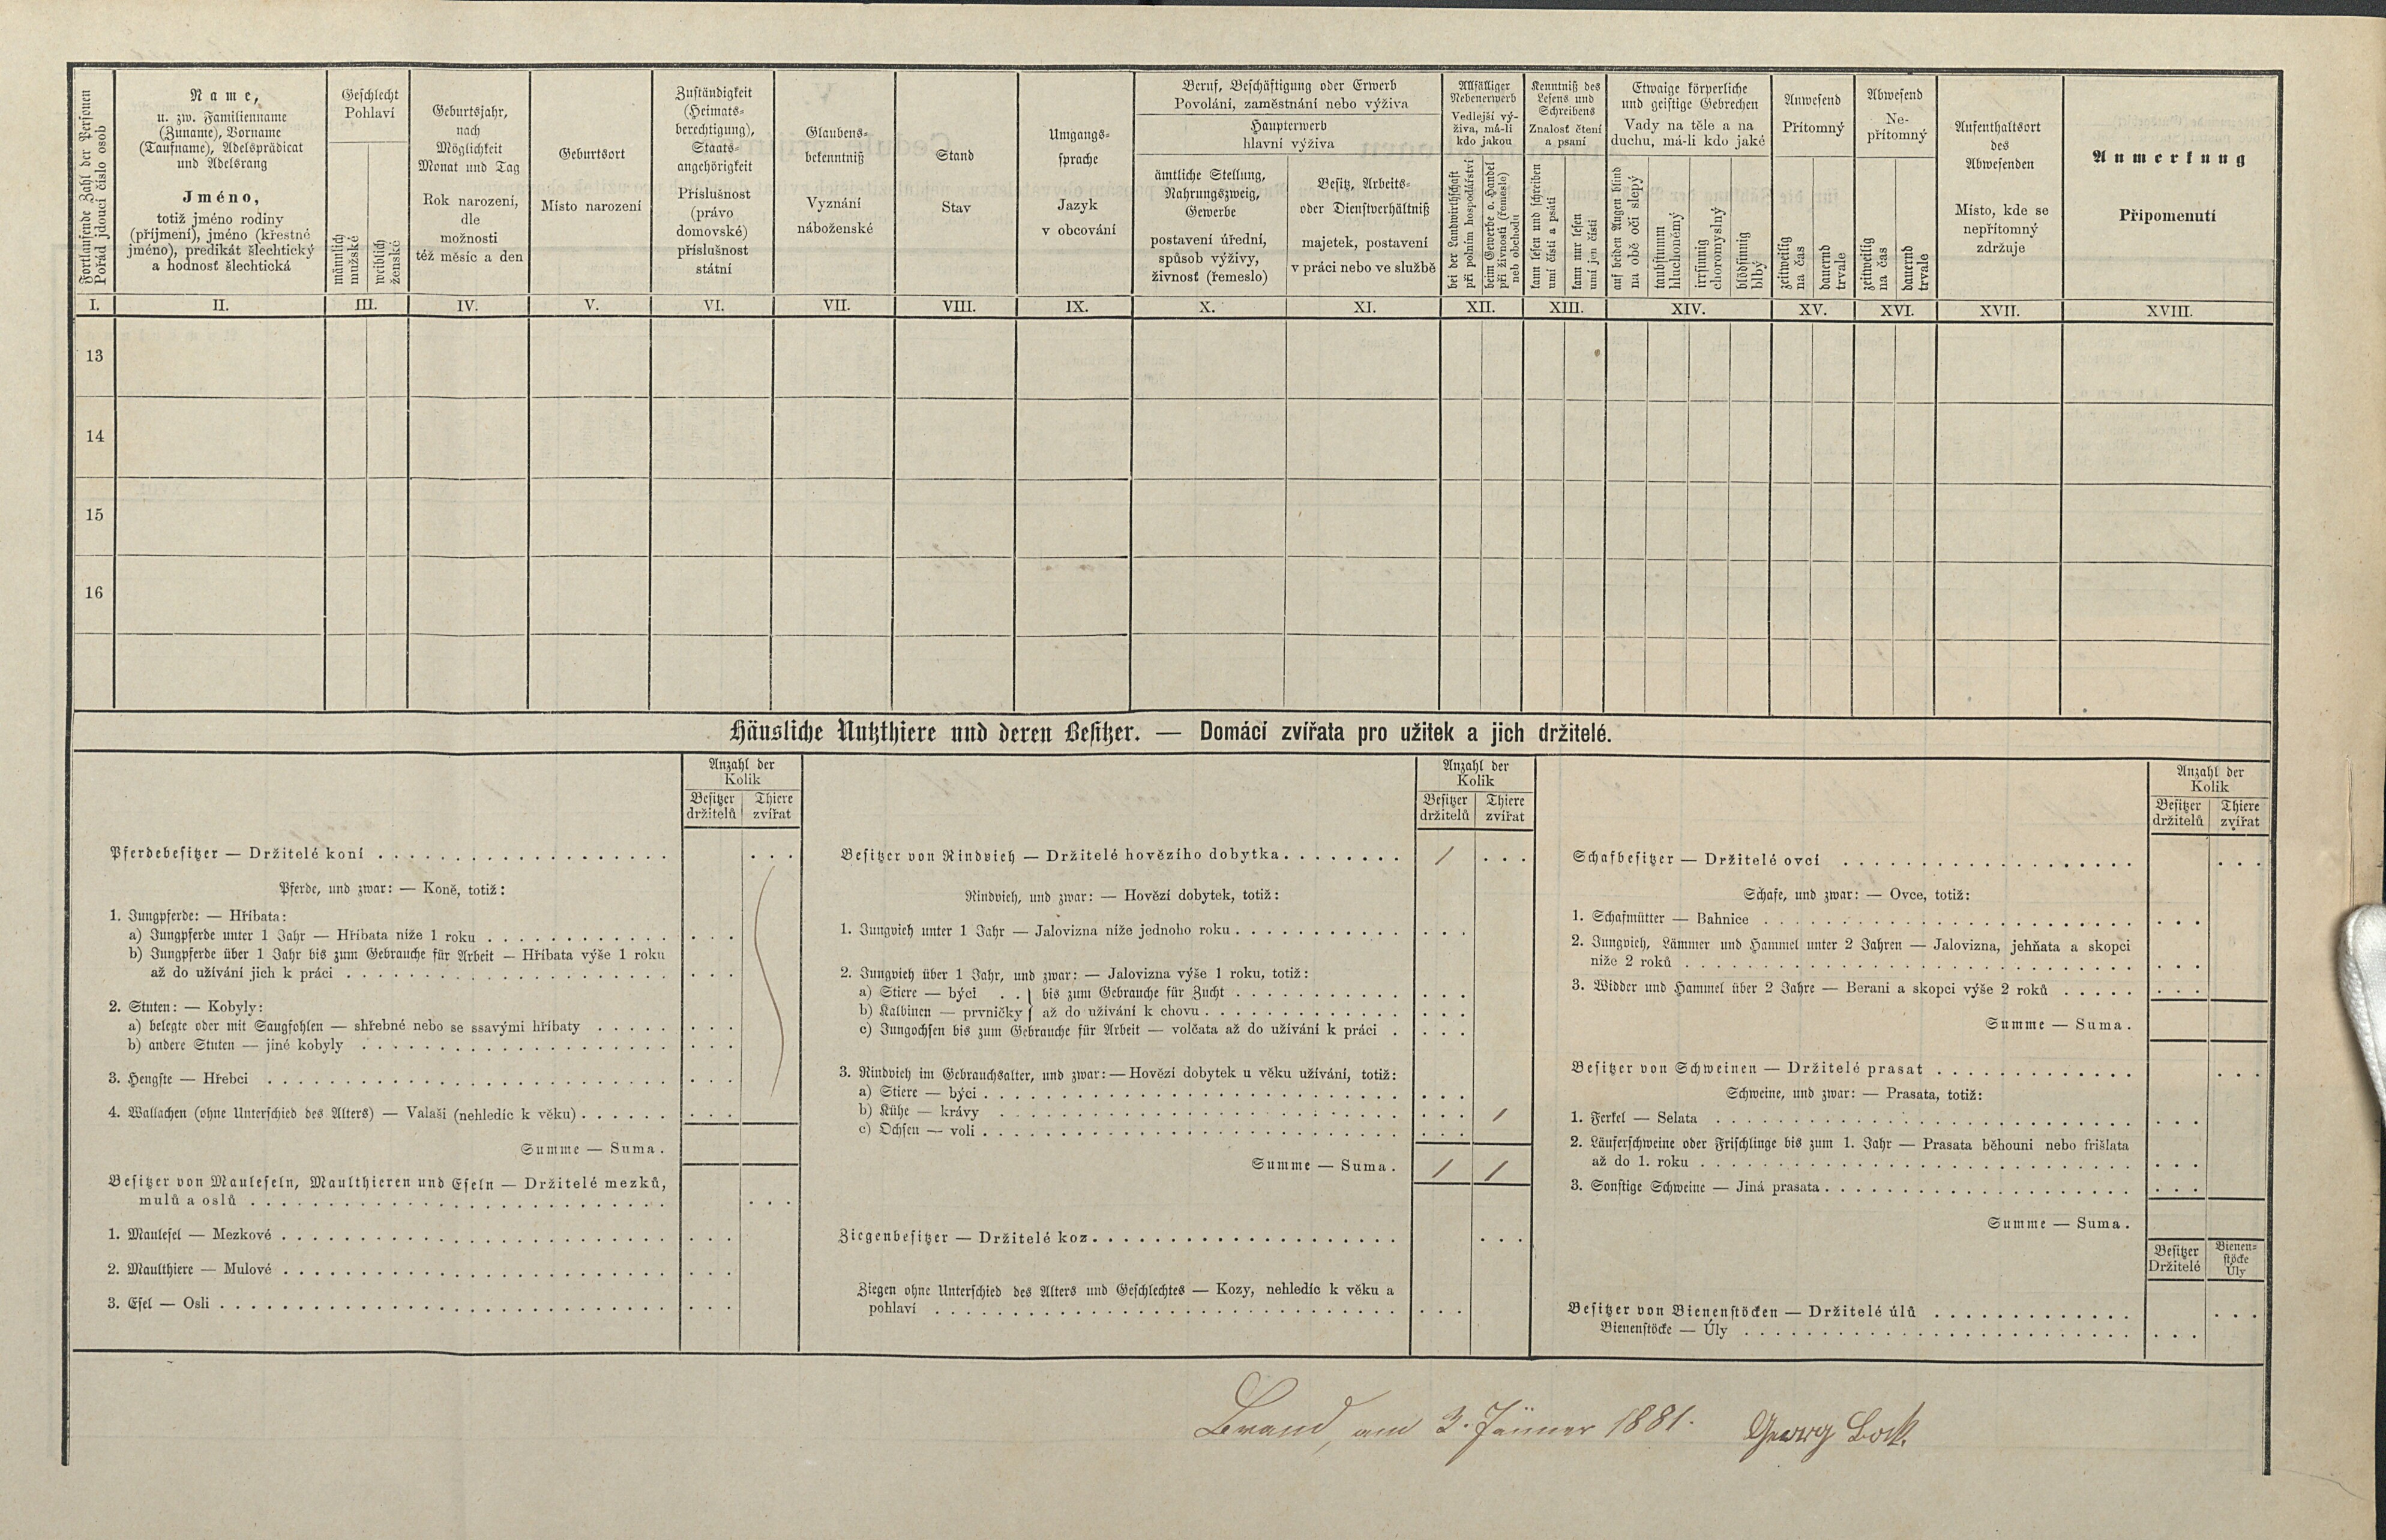 Fortlaufende Zahl der Personen
Pořád jdoucí číslo osob
Name,
u. zw. Familienname
(Zuname), Vorname
(Taufname), Adelsprädicat
und Adelsrang
Jméno,
totiž jméno rodiny
(příjmení), jméno (křestné
jméno), predikát šlechtický
a hodnosť šlechtická
Geschlecht
Pohlaví
männlich
mužské
weiblich
ženské
Geburtsjahr,
nach
Möglichkeit
Monat und Tag
Rok narození,
dle
možnosti
též měsíc a den
Geburtsort
Místo narození
Zuständigkeit
(Heimats-
berechtigung),
Staats-
angehörigkeit
Příslušnost
(právo
domovské)
příslušnost
státní
Glaubens-
bekenntniß
Vyznání
náboženské
Stand
Stav
Umgangs-
sprache
Jazyk
v obcování
Beruf, Beschäftigung oder Erwerb
Povolání, zaměstnání nebo výživa
Haupterwerb
hlavní výživa
ämtliche Stellung,
Nahrungszweig,
Gewerbe
postavení úřední,
spůsob výživy,
živnosť (řemeslo)
Besitz, Arbeits-
oder Dienstverhältniß
majetek, postavení
v práci nebo ve službě
Allfälliger
Nebenerwerb
Vedlejší vý-
živa, má-li
kdo jakou
bei der Landwirthschaft
při polním hospodářství
beim Gewerbe o. Handel
při živnosti (řemesle)
neb obchodu
Kenntniß des
Lesens und
Schreibens
Znalosť čtení
a psaní
kann lesen und schreiben
umí čísti a psáti
kann nur lesen
umí jen čísti
Etwaige körperliche
und geistige Gebrechen
Vady na těle a na
duchu, má-li kdo jaké
auf beiden Augen blind
na obě oči slepý
taubstumm
hluchoněmý
irrsinnig
choromyslný
blödsinnig
blbý
Anwesend
Přítomný
zeitweilig
na čas
dauernd
trvale
Abwesend
Ne-
přítomný
zeitweilig
na čas
dauernd
trvale
Aufenthaltsort
des
Abwesenden
Místo, kde se
nepřítomný
zdržuje
Anmerkung
Připomenutí
I. II. III. IV. V. VI. VII. VIII. IX. X. XI. XII. XIII. XIV. XV. XVI. XVII. XVIII.
13
14
15
16
Häusliche Nutzthiere und deren Besitzer. — Domácí zvířata pro užitek a jich držitelé.
Anzahl der
Kolik
Besitzer
držitelů
Thiere
zvířat
Pferdebesitzer — Držitelé koní . . .
Pferde, und zwar: — Koně, totiž:
1. Jungpferde: — Hříbata:
a) Jungpferde unter 1 Jahr — Hříbata níže 1 roku . . .
b) Jungpferde über 1 Jahr bis zum Gebrauche für Arbeit — Hříbata výše 1 roku
až do užívání jich k práci . . .
2. Stuten: — Kobyly:
a) belegte oder mit Saugfohlen — shřebné nebo se ssavými hříbaty . . .
b) andere Stuten — jiné kobyly . . .
3. Hengste — Hřebci . . .
4. Wallachen (ohne Unterschied des Alters) — Valaši (nehledíc k věku) . . .
Summe — Suma.
Besitzer von Mauleseln, Maulthieren und Eseln — Držitelé mezků,
mulů a oslů . . .
1. Maulesel — Mezkové . . .
2. Maulthiere — Mulové . . .
3. Esel — Osli . . .
Anzahl der
Kolik
Besitzer
držitelů
Thiere
zvířat
Besitzer von Rindvieh — Držitelé hovězího dobytka . . . 1 . . .
Rindvieh, und zwar: — Hovězí dobytek, totiž:
1. Jungvieh unter 1 Jahr — Jalovizna níže jednoho roku . . .
2. Jungvieh über 1 Jahr, und zwar: — Jalovizna výše 1 roku, totiž:
a) Stiere — býci . . } bis zum Gebrauche für Zucht . . .
b) Kalbinen — prvničky } až do užívání k chovu . . .
c) Jungochsen bis zum Gebrauche für Arbeit — volčata až do užívání k práci . . .
3. Rindvieh im Gebrauchsalter, und zwar: — Hovězí dobytek u věku užívání, totiž:
a) Stiere — býci . . .
b) Kühe — krávy . . . 1
c) Ochsen — voli . . .
Summe — Suma. 1 1
Ziegenbesitzer — Držitelé koz . . .
Ziegen ohne Unterschied des Alters und Geschlechtes — Kozy, nehledíc k věku a
pohlaví . . .
Anzahl der
Kolik
Besitzer
držitelů
Thiere
zvířat
Schafbesitzer — Držitelé ovcí . . .
Schafe, und zwar: — Ovce, totiž:
1. Schafmütter — Bahnice . . .
2. Jungvieh, Lämmer und Hammel unter 2 Jahren — Jalovizna, jehňata a skopci
níže 2 roků . . .
3. Widder und Hammel über 2 Jahre — Berani a skopci výše 2 roků . . .
Summe — Suma.
Besitzer von Schweinen — Držitelé prasat . . .
Schweine, und zwar: — Prasata, totiž:
1. Ferkel — Selata . . .
2. Läuferschweine oder Frischlinge bis zum 1. Jahr — Prasata běhouni nebo frišlata
až do 1. roku . . .
3. Sonstige Schweine — Jiná prasata . . .
Summe — Suma.
Besitzer
Držitelé
Bienen-
stöcke
Úly
Besitzer von Bienenstöcken — Držitelé úlů . . .
Bienenstöcke — Úly . . .
Brand, am 3. Jänner 1881. Georg Bock